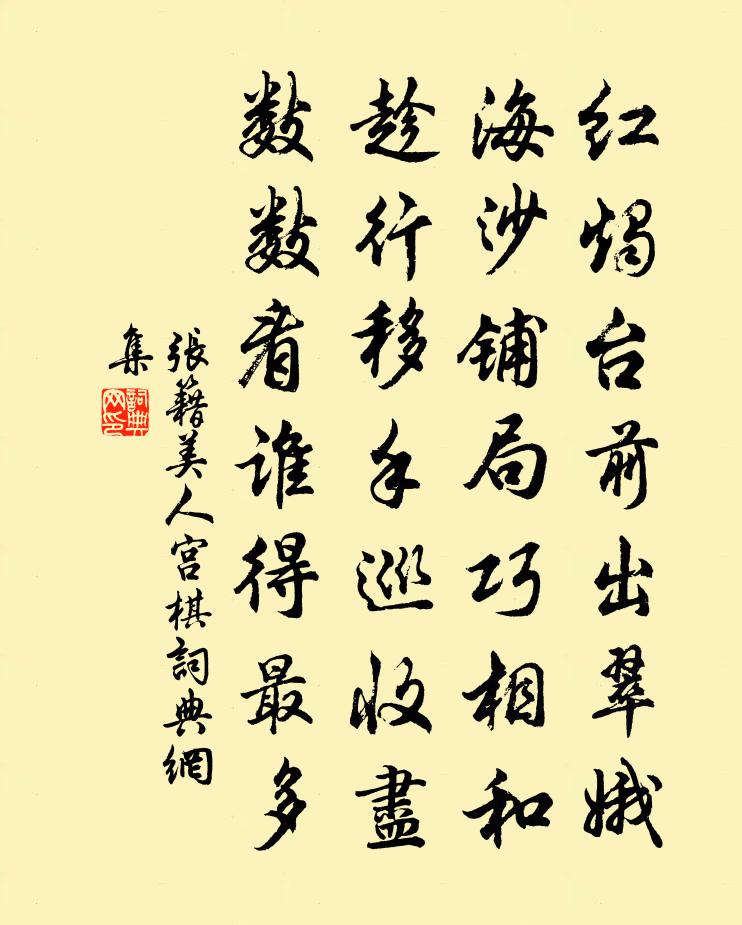 红烛台前出翠娥
海沙铺局巧相和
趁行移手巡收盡
数数看谁得最多
張籍美人宫棋詞典網
集
詞典网印